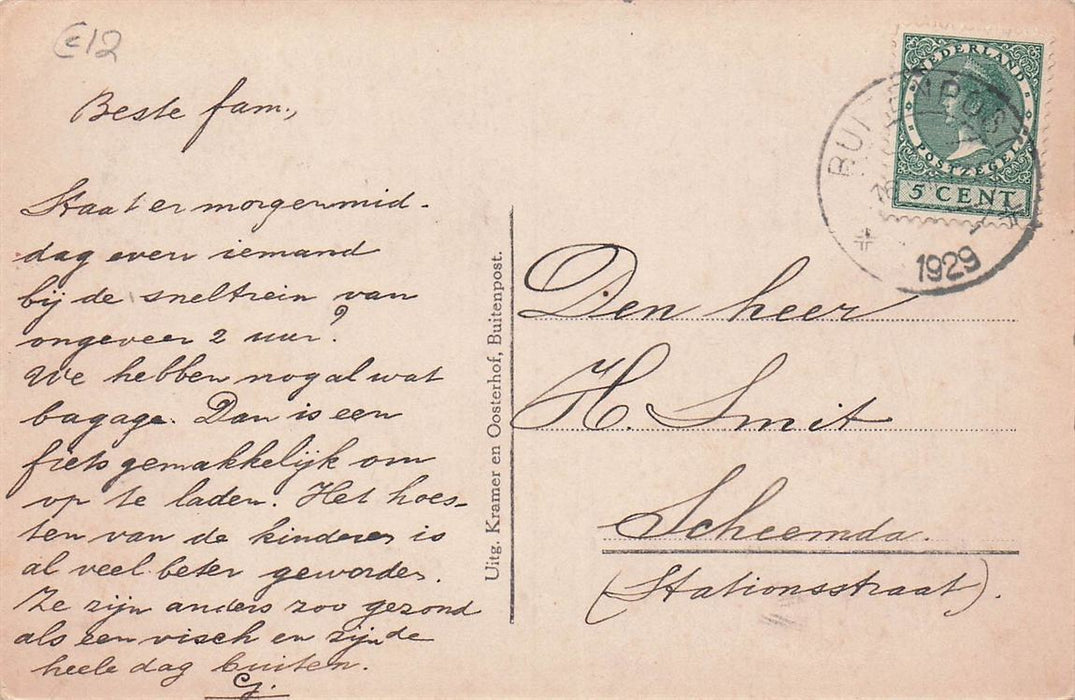 €12
Beste fam.,
Staat er morgenmid-
dag even iemand
bij de sneltrein van
ongeveer 2 uur?
We hebben nog al wat
bagage. Dan is een
fiets gemakkelijk om
op te laden. Het hoes-
ten van de kinderen is
al veel beter geworden.
Ze zijn anders zoo gezond
als een visch en zijn de
heele dag buiten.
Uitg. Kramer en Oosterhof, Buitenpost.
NEDERLAND
POSTZEGEL
5 CENT
BUITENPOST
1929
Den heer
H. Smit
Scheemda.
(Stationsstraat).